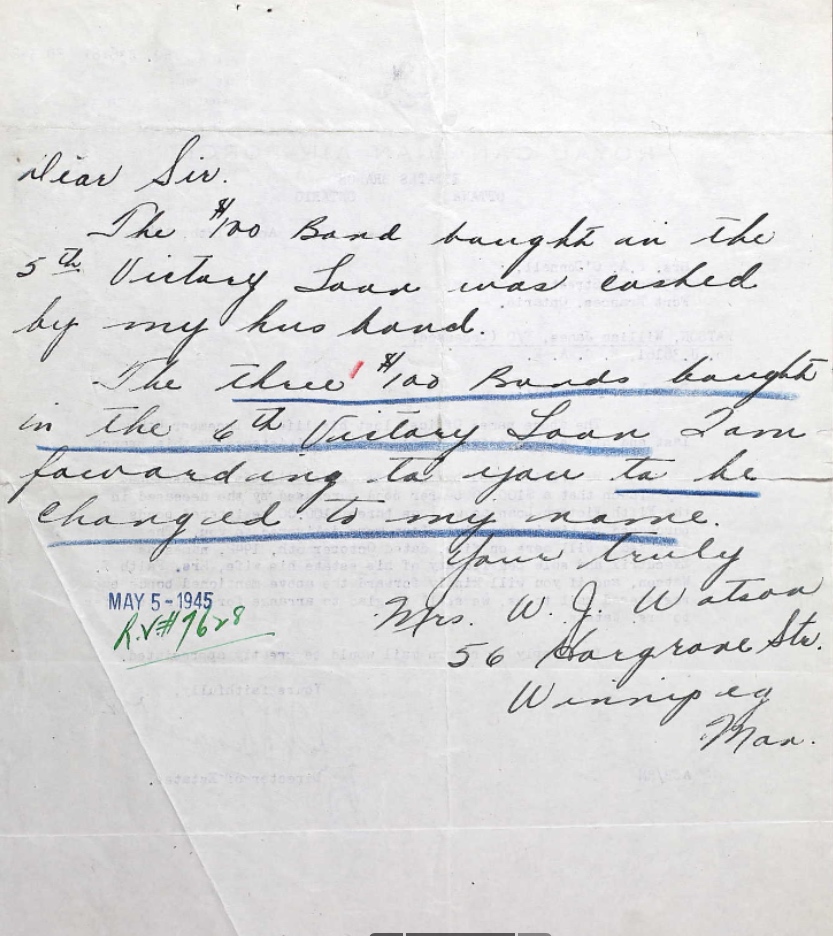 Dear Sir.
The $100 Bond bought in the
5th Victory Loan was cashed
by my husband.
The three $100 Bonds bought
in the 6th Victory Loan I am
forwarding to you to be
changed to my name.
Your truly
Mrs. W. J. Watson
56 Hargrave Str.
Winnipeg
Man.
MAY 5-1945
R.V# 9628